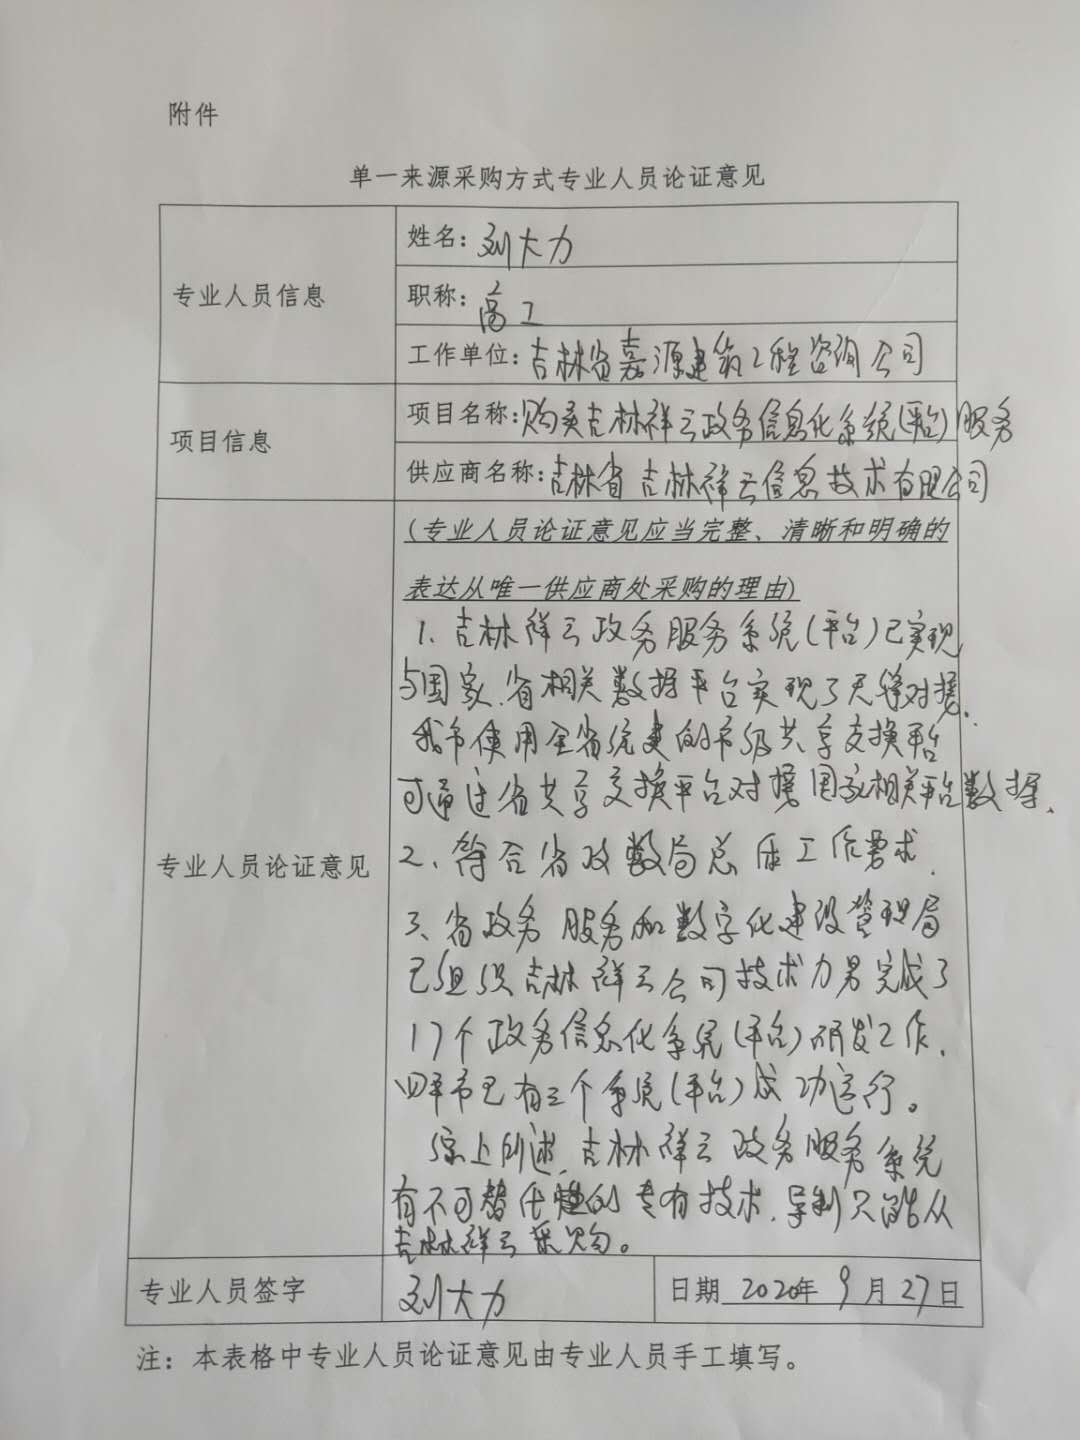 附件
单一来源采购方式专业人员论证意见
专业人员信息
姓名：刘大力
职称：高工
工作单位：吉林省嘉源建筑工程咨询公司
项目信息
项目名称：购买吉林祥云政务信息化系统(平台)服务
供应商名称：吉林省吉林祥云信息技术有限公司
专业人员论证意见
(专业人员论证意见应当完整、清晰和明确的
表达从唯一供应商处采购的理由)
1、吉林祥云政务服务系统(平台)已实现
与国家、省相关数据平台实现了无缝对接.
我市使用全省统建的市级共享交换平台
可通过省共享交换平台对接国家相关平台数据、
2、符合省政数局总体工作要求.
3、省政务服务和数字化建设管理局
已组织吉林祥云公司技术力量完成了
17个政务信息化系统(平台)研发工作，
四平市已有三个系统(平台)成功运行。
综上所述，吉林祥云政务服务系统
有不可替代性的专有技术，导致只能从
吉林祥云采购。
专业人员签字
刘大力
日期 2020年9月27日
注：本表格中专业人员论证意见由专业人员手工填写。